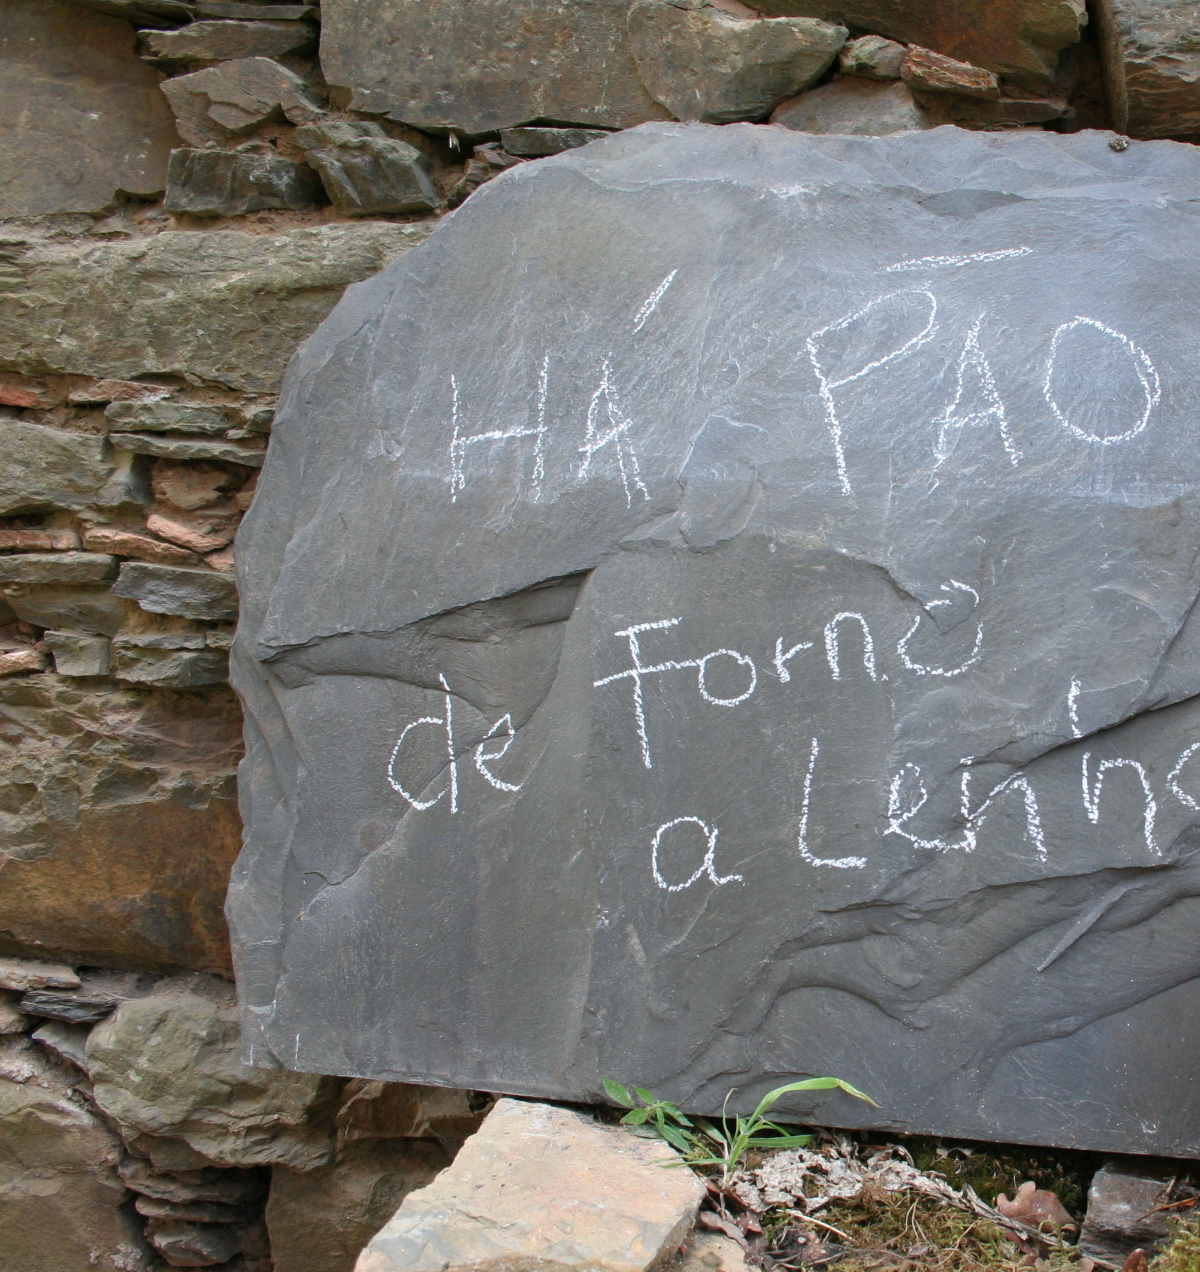 HÁ PÃO
de Forno
a Lenha